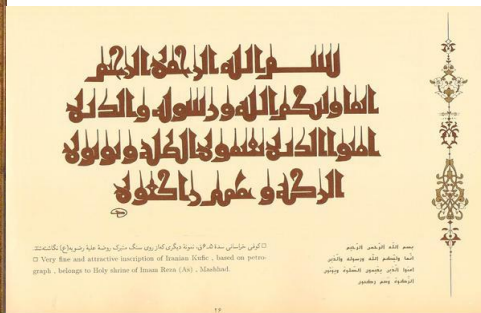 بسم الله الرحمن الرحیم
انما ولیکم الله و رسوله والذین
امنوا الذین یقیمون الصلوة و یوتون
الزکوة و هم راکعون
□ کوفی خراسانی سده ۵ـ۶ق. نمونهٔ دیگری که از روی سنگ متبرک روضهٔ علیهٔ رضویه(ع) نگاشته شد.
□ Very fine and attractive inscription of Iranian Kufic , based on petro-
graph , belongs to Holy shrine of Imam Reza (As) , Mashhad.
بسم الله الرحمن الرحیم
انما ولیکم الله و رسوله والذین
امنوا الذین یقیمون الصلوة ویوتون
الزکوة وهم رکعون